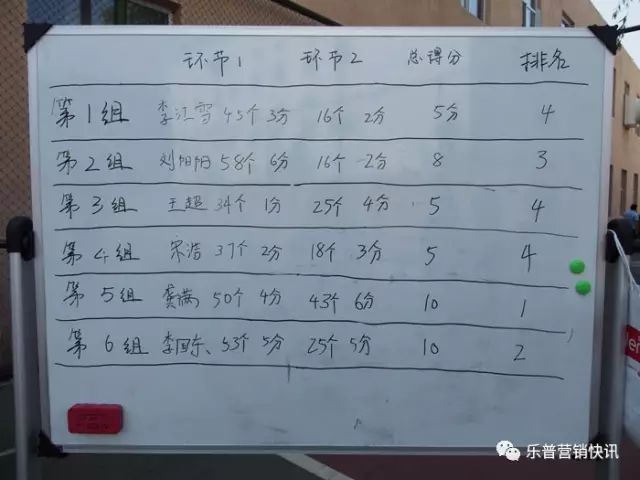 环节1 环节2 总得分 排名
第1组 李江雪 45个 3分 16个 2分 5分 4
第2组 刘阳阳 58个 6分 16个 2分 8 3
第3组 王超 34个 1分 25个 4分 5 4
第4组 宋浩 37个 2分 18个 3分 5 4
第5组 龚满 50个 4分 43个 6分 10 1
第6组 李国东 53个 5分 25个 5分 10 2
乐普营销快讯